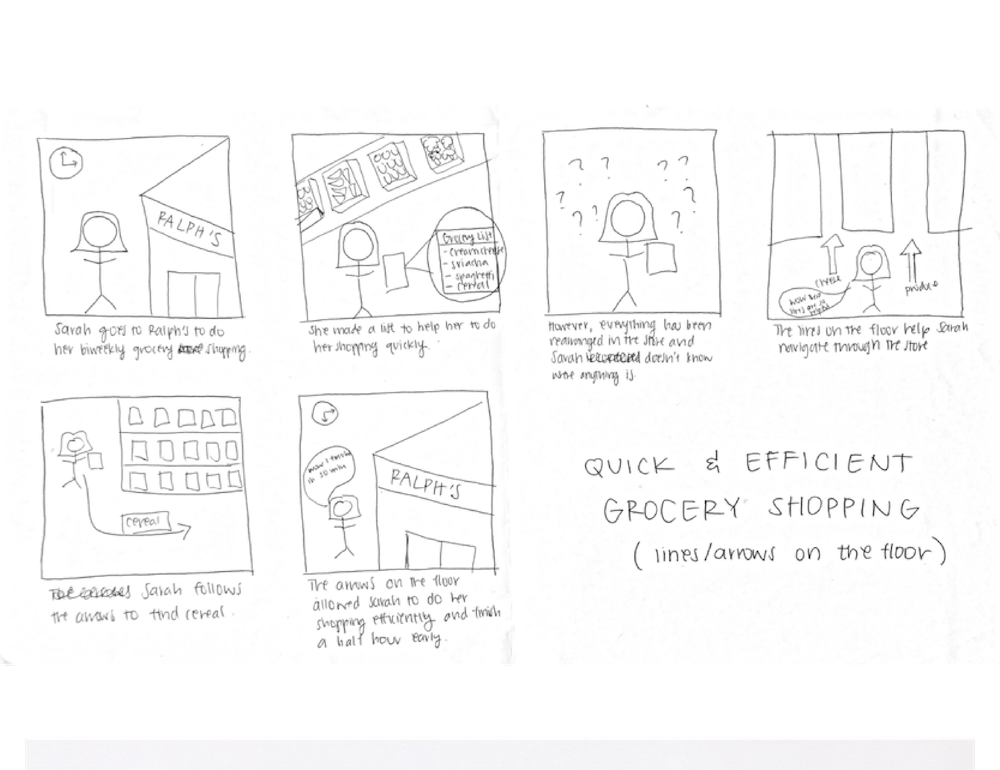 RALPH'S
Sarah goes to Ralph's to do
her biweekly grocery shopping.
Grocery List
- cream cheese
- sriacha
- spaghetti
- cereal
She made a list to help her to do
her shopping quickly.
? ? ? ? ? ? ? ? ?
However, everything has been
rearranged in the store and
Sarah doesn't know
were anything is.
cheese
produce
wow
lines are so
helpful
The lines on the floor help Sarah
navigate through the store
cereal
Sarah follows
the arrows to find cereal.
wow I finish
in 30 min
RALPH'S
The arrows on the floor
allowed Sarah to do her
shopping efficiently and finish
a half hour early.
QUICK & EFFICIENT
GROCERY SHOPPING
(lines/arrows on the floor)